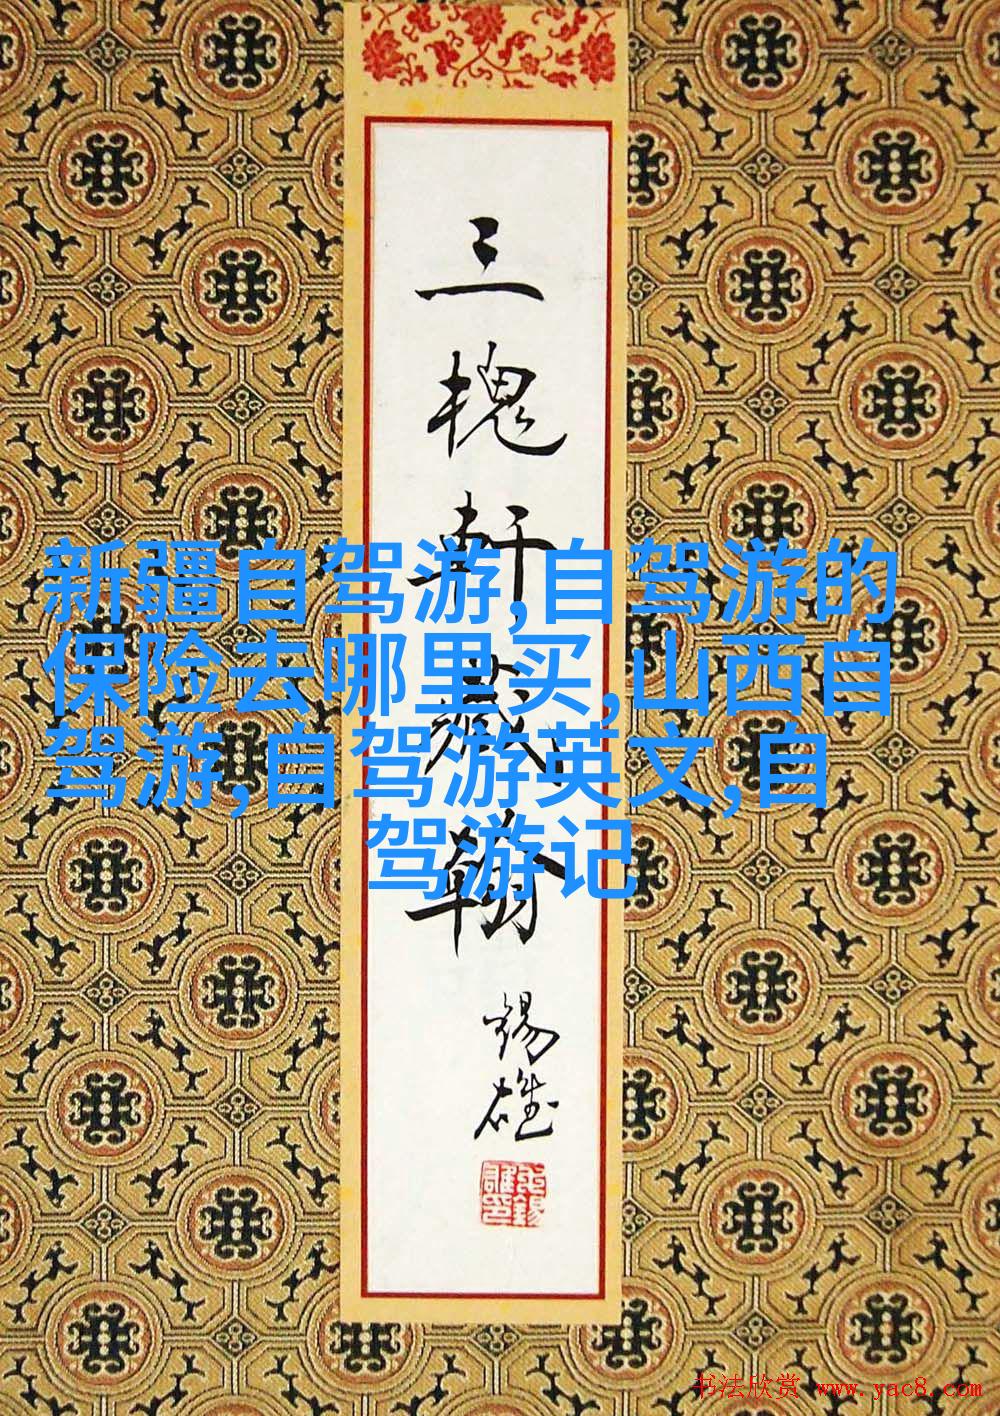 三槐軒藏翰
锡雄
新疆自驾游,自驾游的
保险去哪里买,山西自
驾游,自驾游英文,自
驾游记
书法欣赏 www.yac8.com